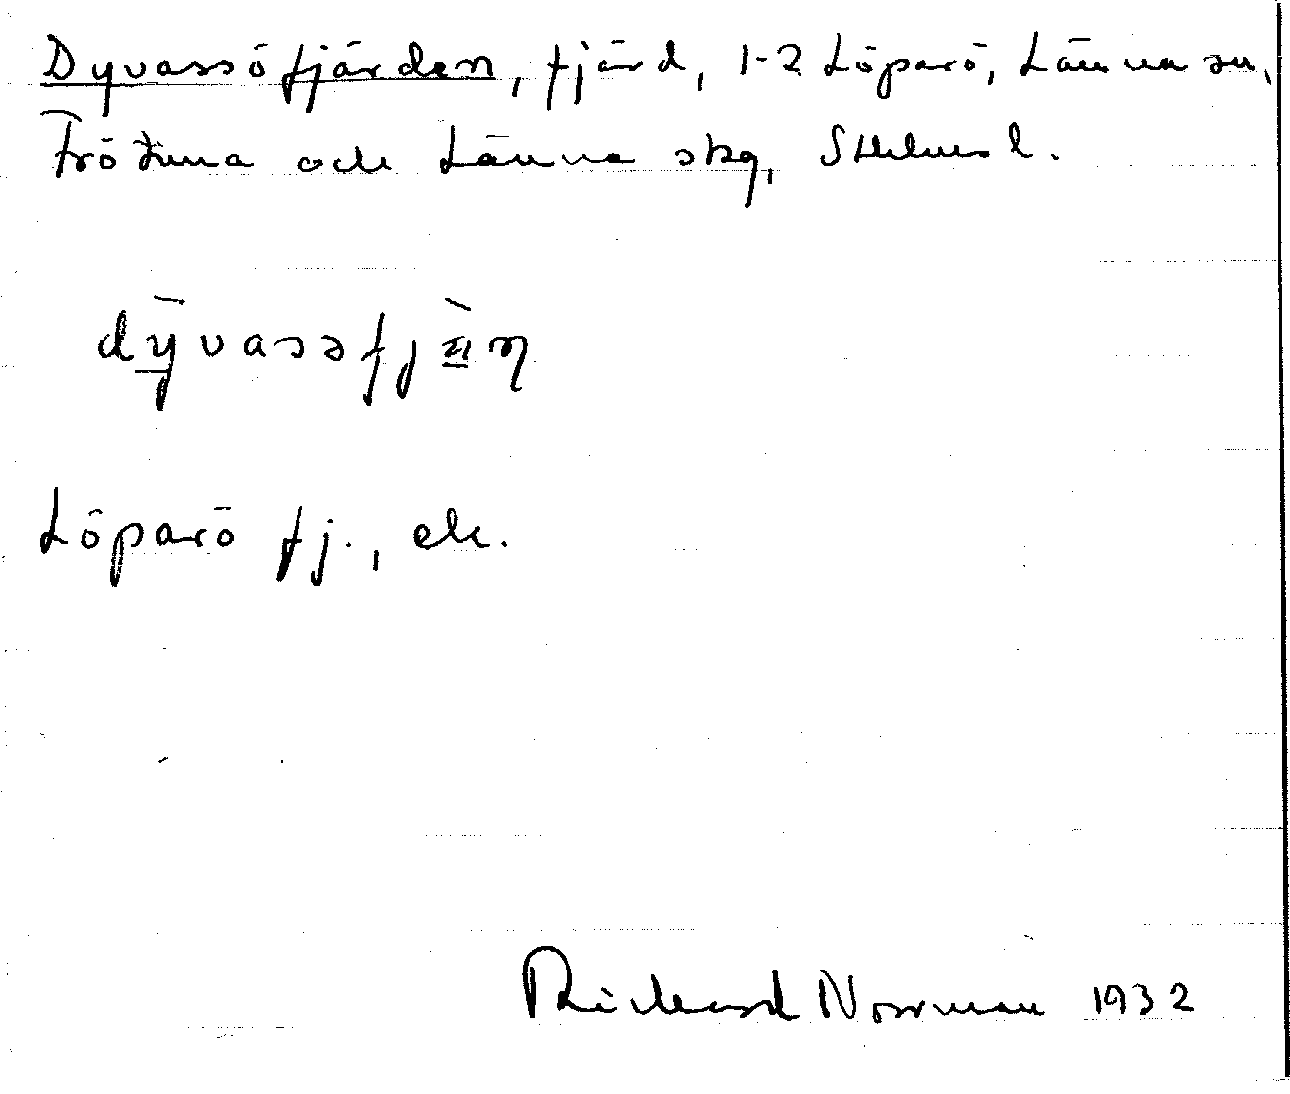 Dyvassöfjärden, fjärd, 1-2 Löparö, Länna sn,
Frötuna och Länna skg, Sthlms l.
dȳ̲vassəfjæ̲̀ṇ
Löparö fj., ek.
Rickard Norrman 1932